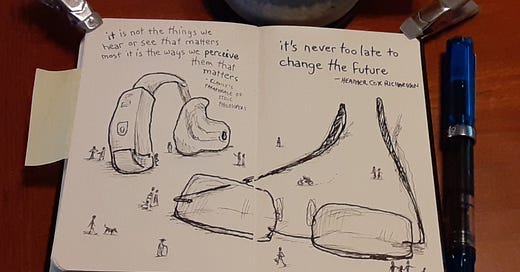 it is not the things we
hear or see that matters
most it is the ways we perceive
them that
matters
PARAPHRASE OF
STOIC
PHILOSOPHERS
it's never too late to
change the future
- HEATHER COX RICHARDSON